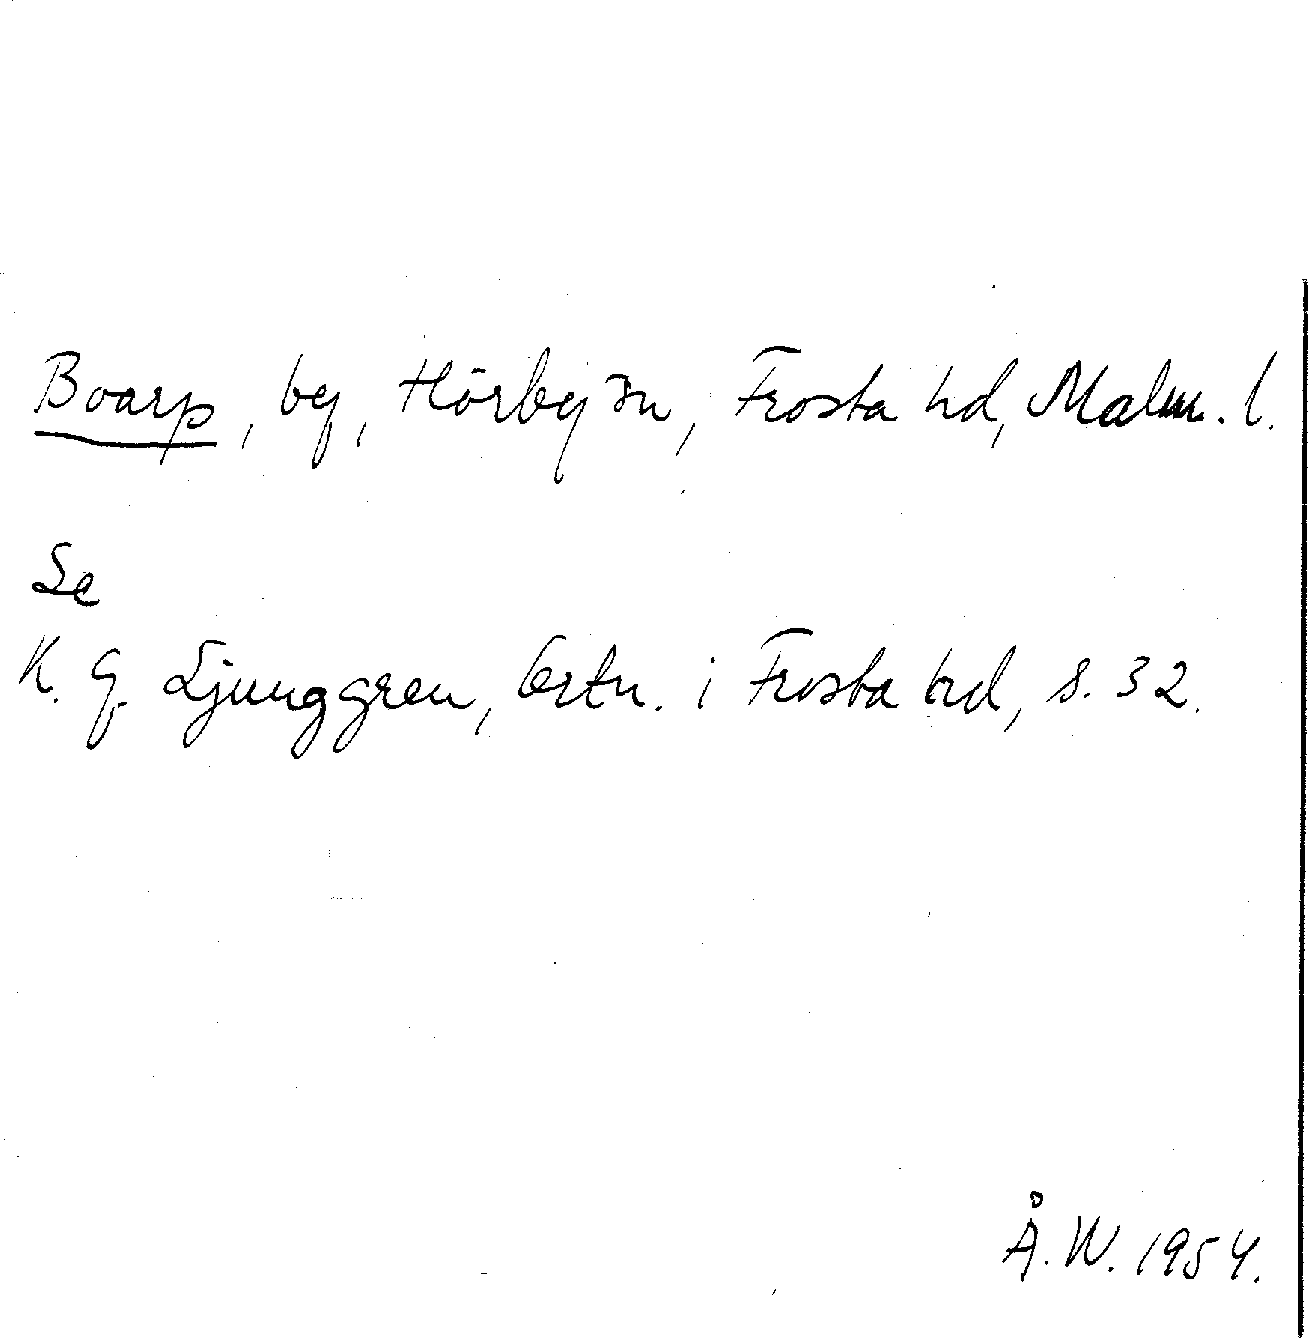 Boarp, by, Hörby sn, Frosta hd, Malm. l.
Se
K. G. Ljunggren, Ortn. i Frosta hd, s. 32.
Å. W. 1954.